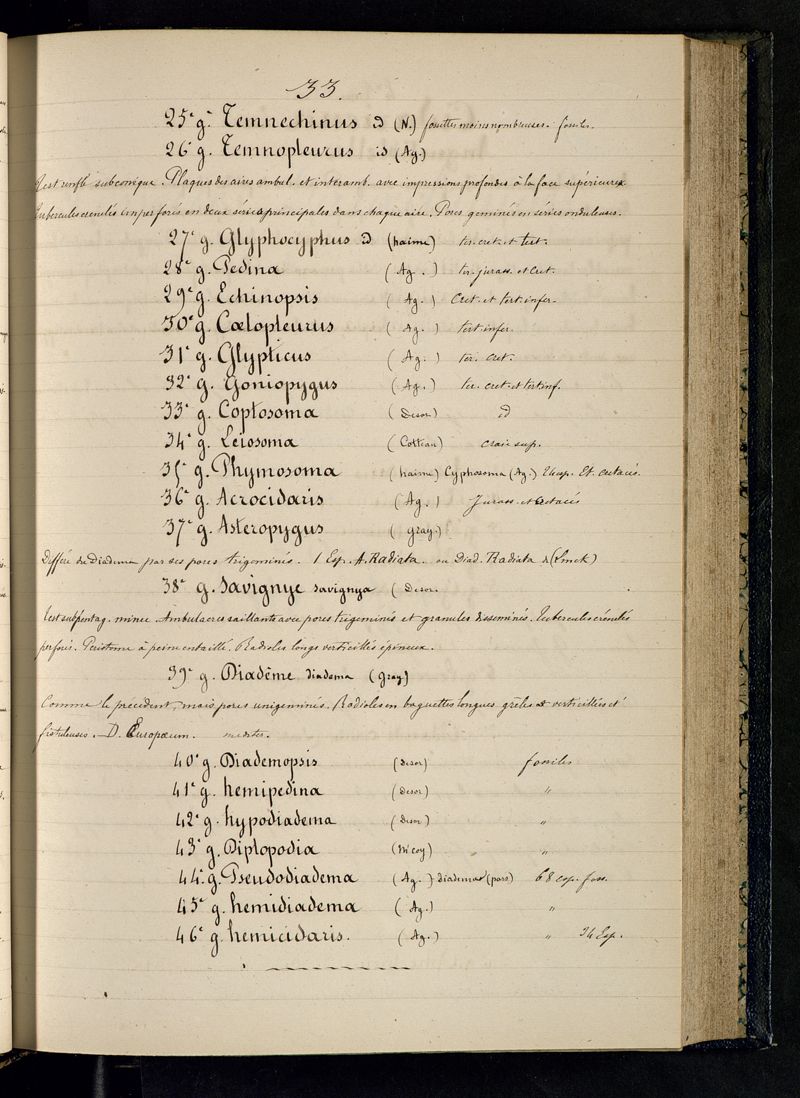 33.
25e g. Temnechinus id (N.) fossettes moins nombreuses. fossiles.
26e g. Temnopleurus is (Ag.)
Test renflé subconique. Plaques des aires ambul. et interamb. avec impressions profondes à la face supérieure.
Tubercules crenelés imperforés en deux séries principales dans chaque aire. Pores geminés en séries onduleuses.
27e g. Glyphocyphus id (haime) ter. cret. et tert.
28e g. Pedina (Ag.) ter. jurass. et Cret.
29e g. Echinopsis (Ag.) Cret. et tert. infer.
30e g. Cœlopleurus (Ag.) tert. infer.
31e g. Glypticus (Ag.) ter. cret.
32e g. Goniopygus (Ag.) ter. cret. et tert. inf.
33e g. Coptosoma (Desor) id
34e g. Leiosoma (Cotteau) craie sup.
35e g. Phymosoma (haime) Cyphosoma (Ag.) esp. Et. cretacés.
36e g. Acrocidaris (Ag.) Jurass. et cretacés
37e g. Asteropygus (gray.)
Differe du Diadema par ses pores trigeminés. 1 Esp. A. Radiata. ou Diad. Radiata de (Lmck)
38e g. Savignye savignya (Desor.
Test subpentag. mince. Ambulacres saillants avec pores trigeminés et granules disseminés. Tubercules crénelés
perforés. Peristome à peine entaillé. Radioles longs verticillés épineux.
39e g. Diadême diadema (gray.)
Comme le précedent, mais pores unigeminés. Radioles en baguettes longues grèles et verticillées et
fistuleuses. D. Europœum. mediter.
40e g. Diademopsis (desor) fossiles
41e g. hemipedina (desor) "
42e g. hypodiadema (desor) "
43e g. Diplopodia (McCoy) "
44e g. Pseudodiadema (Ag.) diadema (pars) 68 esp. foss.
45e g. hemidiadema (Ag.) "
46e g. hemicidaris. (Ag.) " 34 Esp.